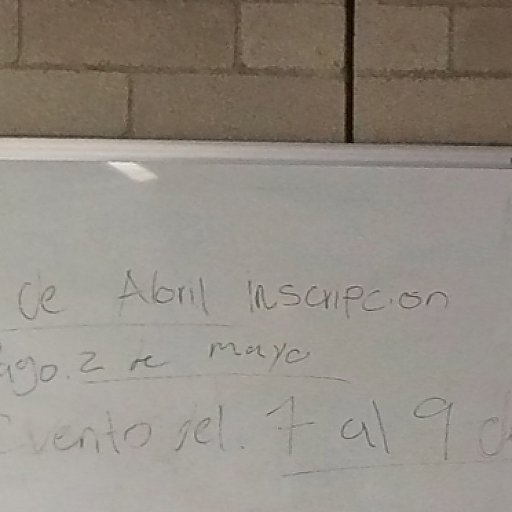 de Abril inscripcion
ago. 2 de mayo
Evento del. 7 al 9 d